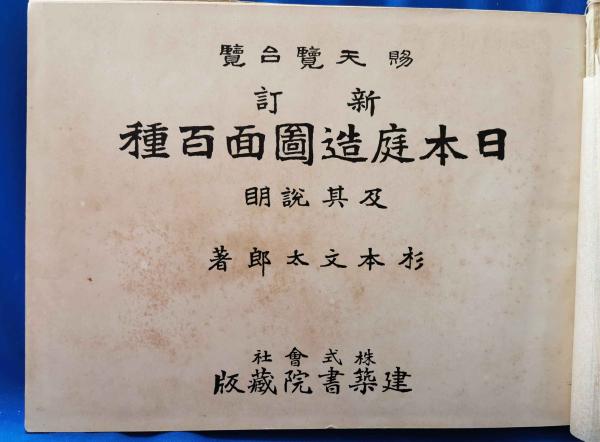 賜天覽台覽
新訂
日本庭造圖面百種
及其說明
杉本文太郎著
株式會社
建築書院藏版